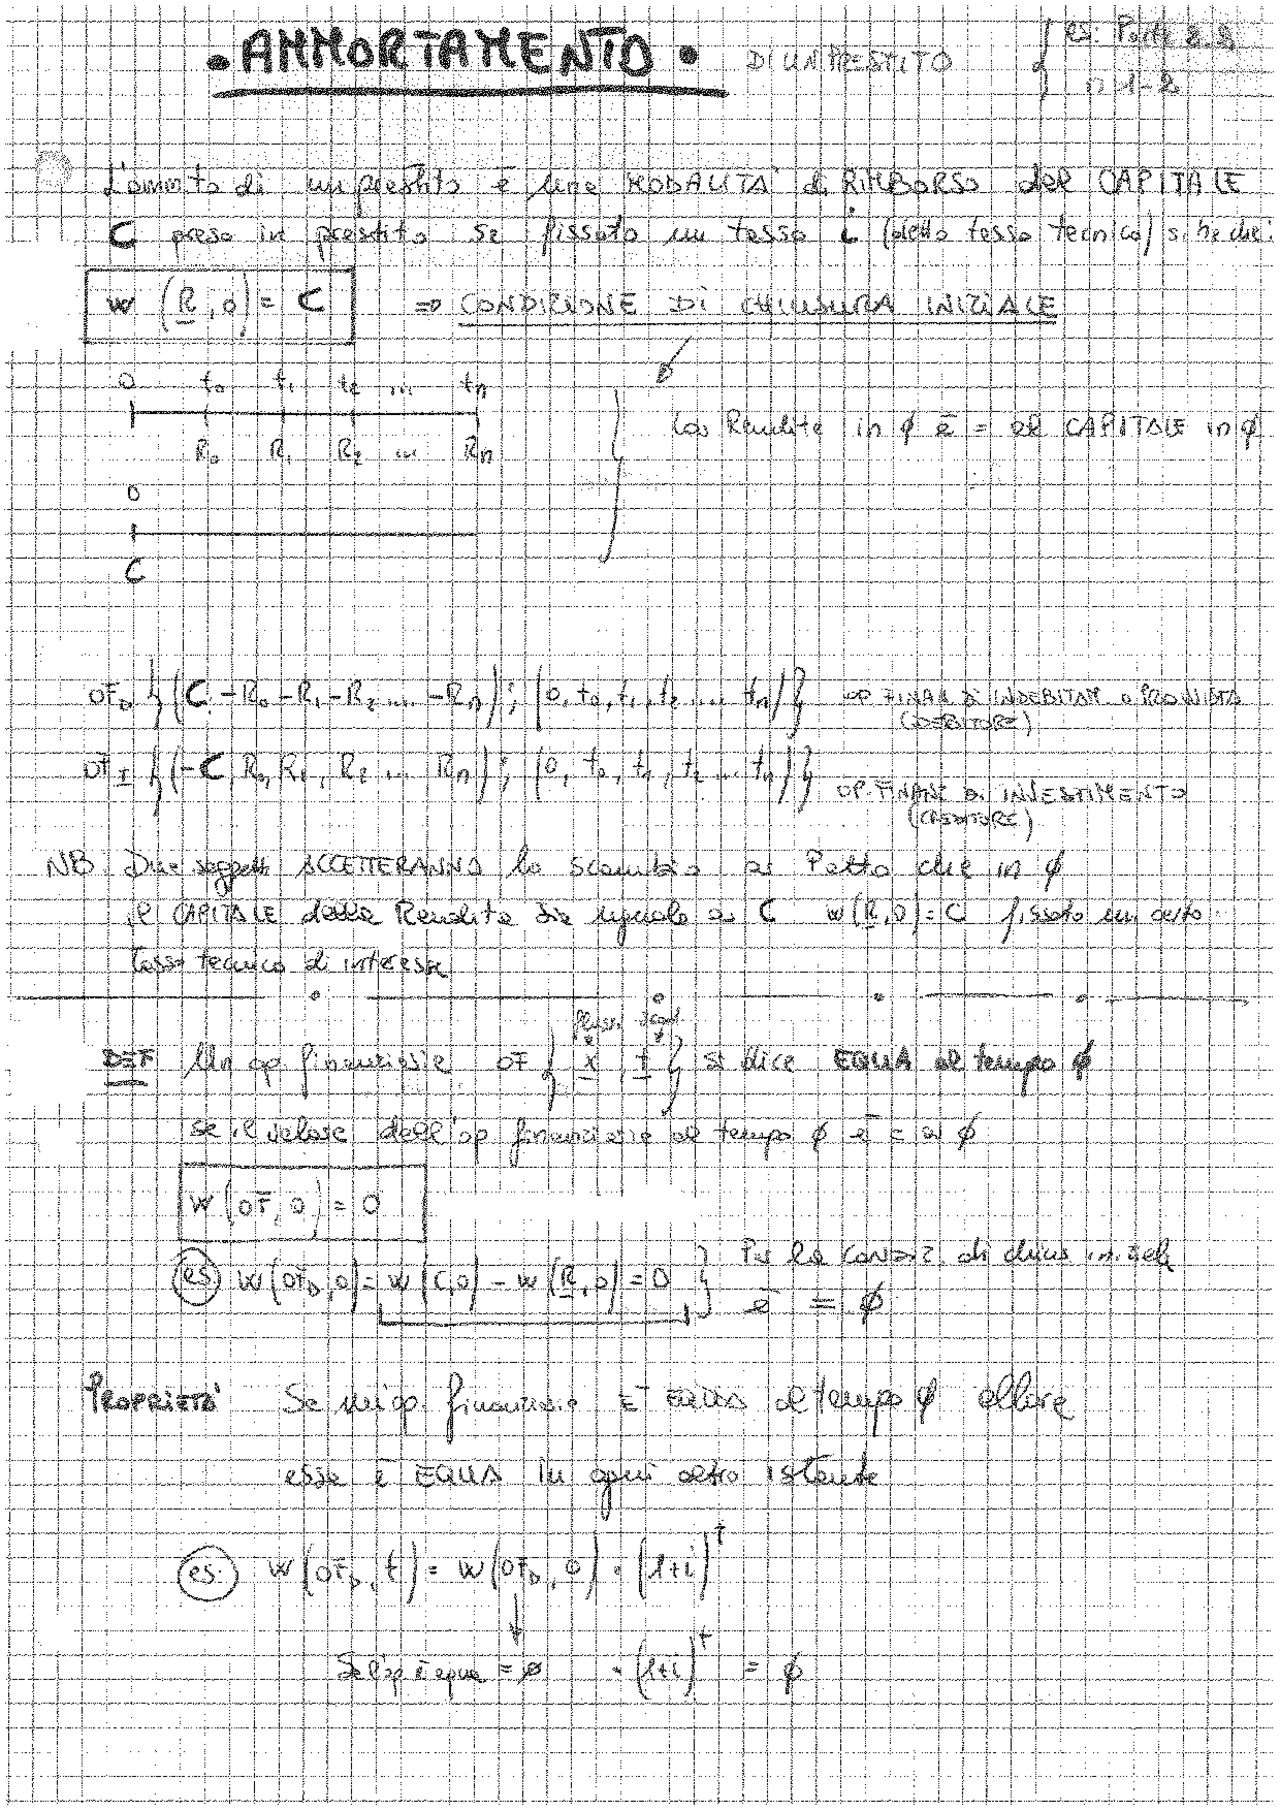 • AMMORTAMENTO • DI UN PRESTITO { es: Parte 2.2
n 1-2
L'amm.to di un prestito è una MODALITA' di RIMBORSO del CAPITALE
C preso in prestito se fissato un tasso i (detto tasso tecnico) si ha che:
W (R, 0) = C ⇒ CONDIZIONE DI CHIUSURA INIZIALE
0 t0 t1 t2 ... tn
R0 R1 R2 ... Rn
La Rendita in ø è = al CAPITALE in ø
0
C
OFD {(C, -R0 -R1 -R2 ... -Rn); (0, t0, t1, t2 ... tn)} OP FINAN DI INDEBITAM o PROVVISTA
(DEBITORE)
OFI {(-C, R0, R1, R2 ... Rn); (0, t0, t1, t2 ... tn)} OP. FINANZ DI INVESTIMENTO
(CREDITORE)
NB Due soggetti ACCETTERANNO lo scambio a Patto che in ø
il CAPITALE della Rendita sia uguale a C W(R,0)=C fissato un certo
tasso tecnico di interesse
flussi scad
DEF Un op finanziaria OF { x, t } si dice EQUA al tempo ø
se il valore dell'op finanziaria al tempo ø è = a ø
W(OF, 0) = 0
es W(OFD,0) = W(C,0) - W(R,0) = 0 } Per la condiz. di chius iniziale
è = ø
PROPRIETÀ Se un'op. finanziaria È EQUA al tempo ø allora
essa è EQUA in ogni altro istante
es: W(OFD, t) = W(OFD, 0) · (1+i)^t
Se l'op è equa = ø · (1+i)^t = ø